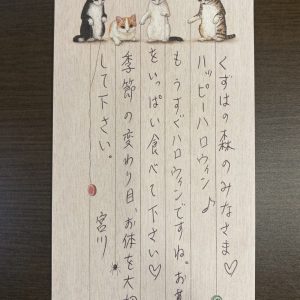 くずはの森のみなさま♡
ハッピーハロウィン♪
もうすぐハロウィンですね。お菓
をいっぱい食べて下さい♡
季節の変わり目、お体を大切
して下さい。
宮川